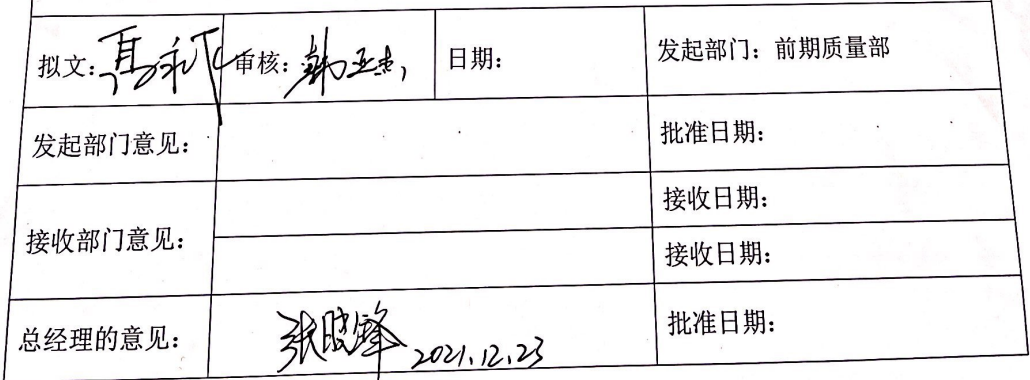 拟文: 审核:韩亚杰 日期: 发起部门:前期质量部
发起部门意见: 批准日期:
接收部门意见: 接收日期:
接收日期:
总经理的意见: 张晓锋 2021.12.23 批准日期: